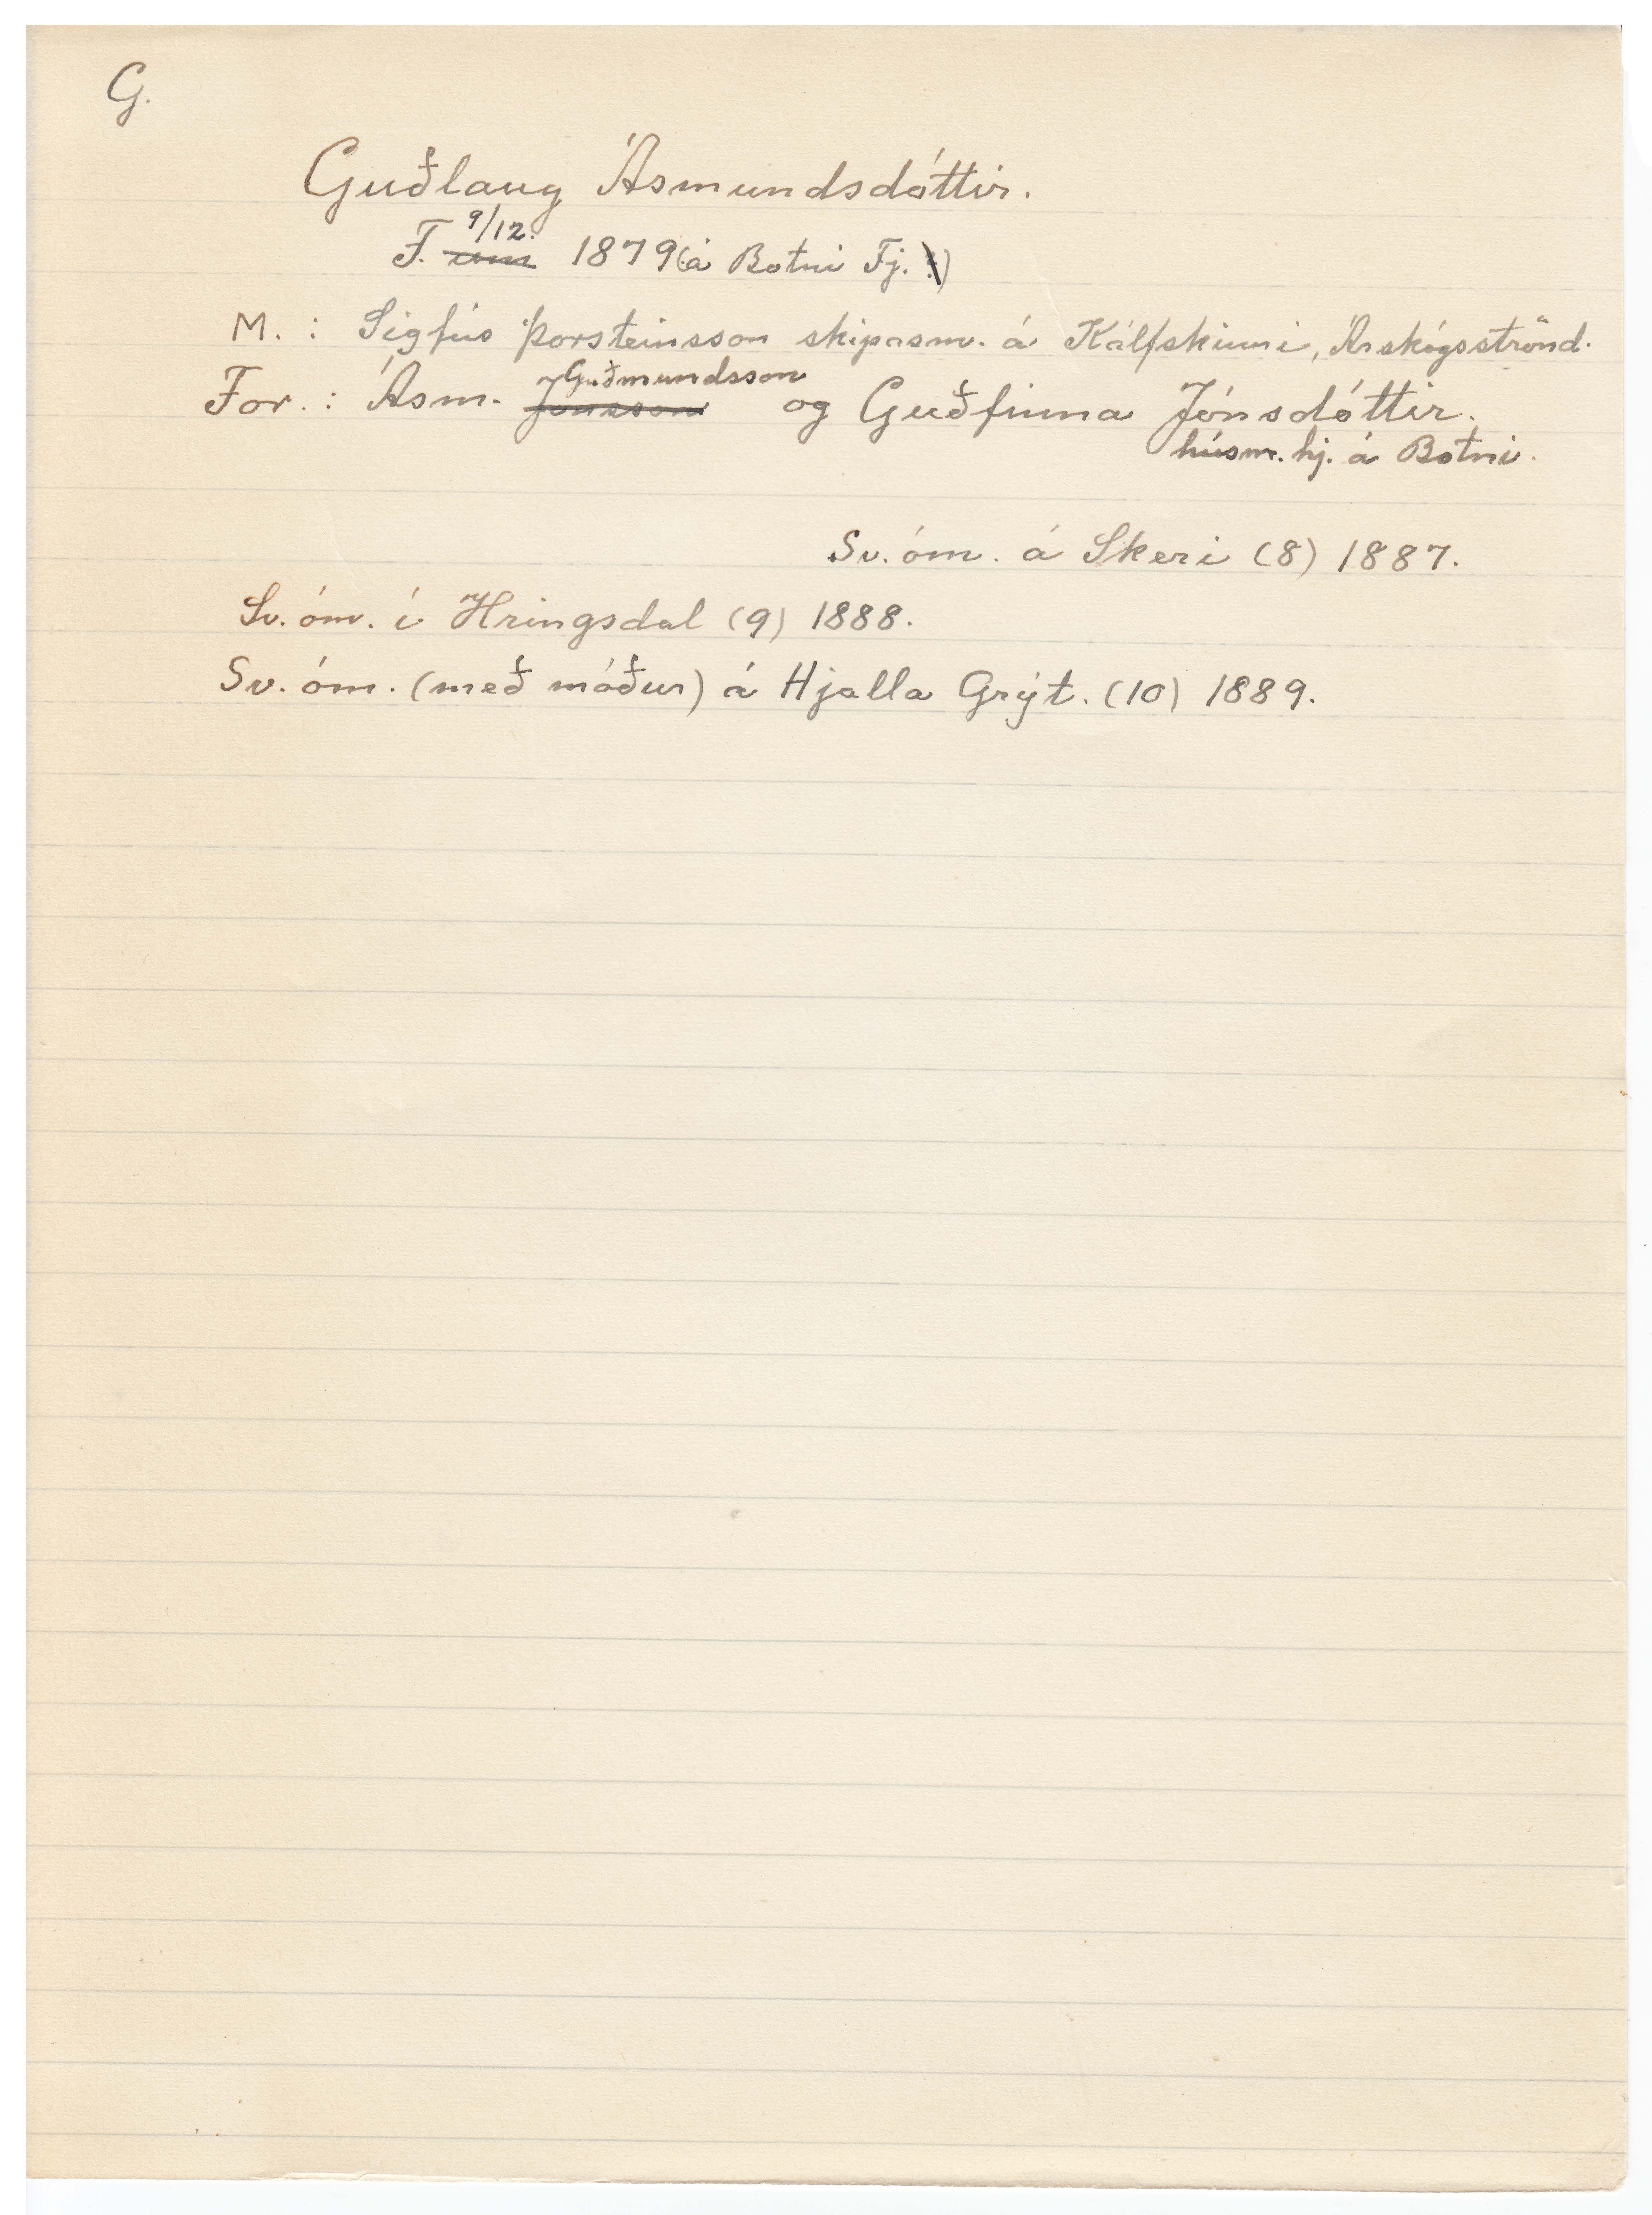 G.
Guðlaug Ásmundsdóttir.
F. um 9/12. 1879 (á Botni Fj.)
M.: Sigfús Þorsteinsson skipasm. á Kálfskinni, Árskógsströnd.
For.: Ásm. Jónsson Guðmundsson og Guðfinna Jónsdóttir.
húsm. hj. á Botni.
Sv. óm. á Skeri (8) 1887.
Sv. óm. í Hringsdal (9) 1888.
Sv. óm. (með móður) á Hjalla Grýt. (10) 1889.